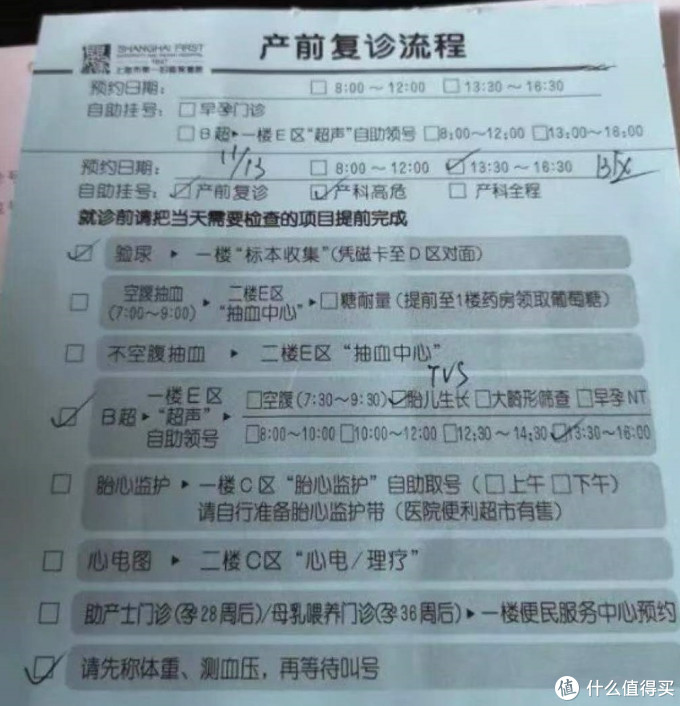 SHANGHAI FIRST
产前复诊流程
预约日期: □ 8:00～12:00 □ 13:30～16:30
自助挂号: □ 早孕门诊
□ B超▸一楼E区“超声”自助领号 □8:00～12:00 □13:00～16:00
预约日期: 11/13 □ 8:00～12:00 ☑ 13:30～16:30
自助挂号: ☑ 产前复诊 ☑ 产科高危 □ 产科全程
就诊前请把当天需要检查的项目提前完成
☑ 验尿 ▸ 一楼“标本收集”(凭磁卡至D区对面)
□ 空腹抽血 (7:00～9:00) ▸ 二楼E区 “抽血中心” ▸ □糖耐量 (提前至1楼药房领取葡萄糖)
□ 不空腹抽血 ▸ 二楼E区 “抽血中心”
TVS
☑ B超▸ 一楼E区 “超声”▸ 自助领号 □空腹(7:30～9:30) ☑胎儿生长 □大畸形筛查 □早孕NT
□8:00～10:00 □10:00～12:00 □12:30～14:30 ☑13:30～16:00
□ 胎心监护 ▸ 一楼C区“胎心监护”自助取号 (□上午 □下午)
请自行准备胎心监护带 (医院便利超市有售)
□ 心电图 ▸ 二楼C区“心电/理疗”
□ 助产士门诊(孕28周后)/母乳喂养门诊(孕36周后)▸一楼便民服务中心预约
☑ 请先称体重、测血压，再等待叫号
值 什么值得买